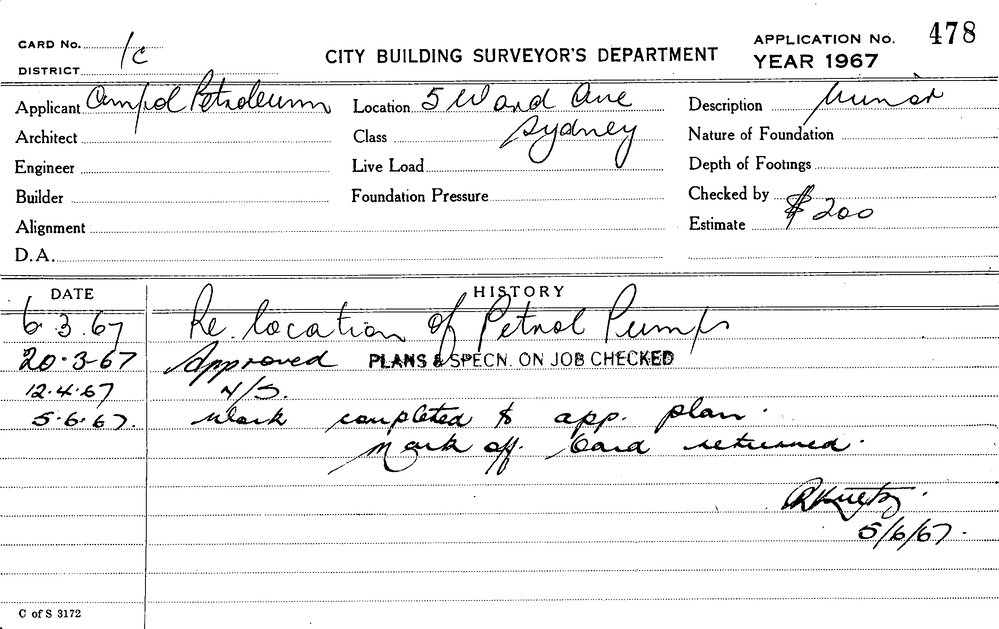 CARD No. 1c
DISTRICT
CITY BUILDING SURVEYOR'S DEPARTMENT
APPLICATION No. 478
YEAR 1967
Applicant Ampol Petroleum
Location 5 Ward Ave
Sydney
Description Minor
Architect
Class
Nature of Foundation
Engineer
Live Load
Depth of Footings
Builder
Foundation Pressure
Checked by
Alignment
Estimate $200
D.A.
DATE HISTORY
6.3.67 Re location of Petrol Pumps
20.3.67 Approved PLANS & SPECN. ON JOB CHECKED
12.4.67 N/S.
5.6.67. Work completed to app. plan.
Mark off. Card returned.
5/6/67.
C of S 3172